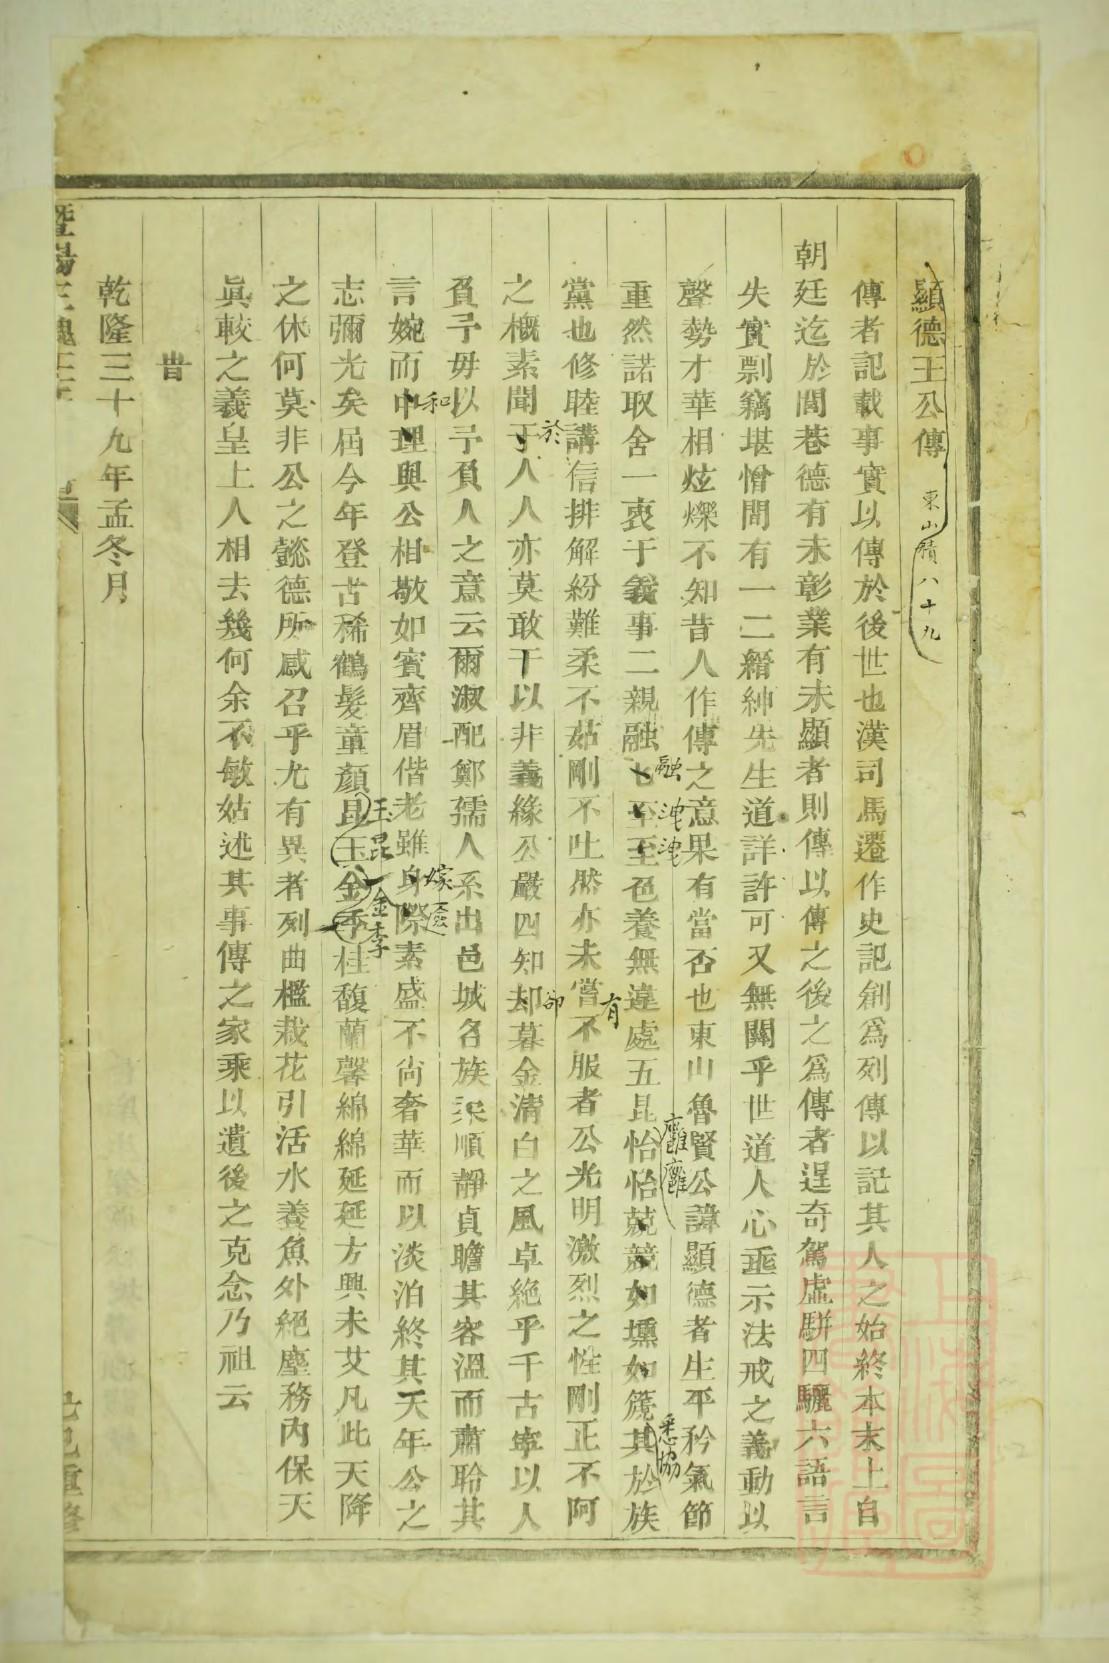 顯德王公傳 東山積八十九
傳者記載事實以傳於後世也漢司馬遷作史記創爲列傳以記其人之始終本末上自
朝廷迄於閭巷德有未彰業有未顯者則傳以傳之後之爲傳者逞奇駕虛駢四驪六語言
失實剽竊堪憎間有一二縉紳先生道詳許可又無關乎世道人心垂示法戒之義動以
聲勢才華相炫爍不知昔人作傳之意果有當否也東山魯賢公諱顯德者生平矜氣節
重然諾取舍一衷于義事二親融七至至色養無違處五昆怡怡兢兢如壎如篪其於族
融洩洩
雝雝
悉協
黨也修睦講信排解紛難柔不姑剛不吐然亦未嘗不服者公光明激烈之性剛正不阿
有
之概素聞于人人亦莫敢干以非義緣公嚴四知却暮金清白之風卓絕乎千古寧以人
於
卻
負予毋以予負人之意云爾淑配鄭孺人系出邑城名族柔順靜貞瞻其容溫而肅聆其
言婉而中理與公相敬如賓齊眉偕老雖身際素盛不尚奢華而以淡泊終其天年公之
和
嫁奩
志彌光矣屆今年登古稀鶴髮童顏昆玉金季桂馥蘭馨綿綿延延方興未艾凡此天降
玉昆金季
之休何莫非公之懿德所感召乎尤有異者列曲檻栽花引活水養魚外絕塵務內保天
眞較之羲皇上人相去幾何余不敏姑述其事傳之家乘以遺後之克念乃祖云
昔
乾隆三十九年孟冬月
暨陽
己巳重修
上海圖書館藏